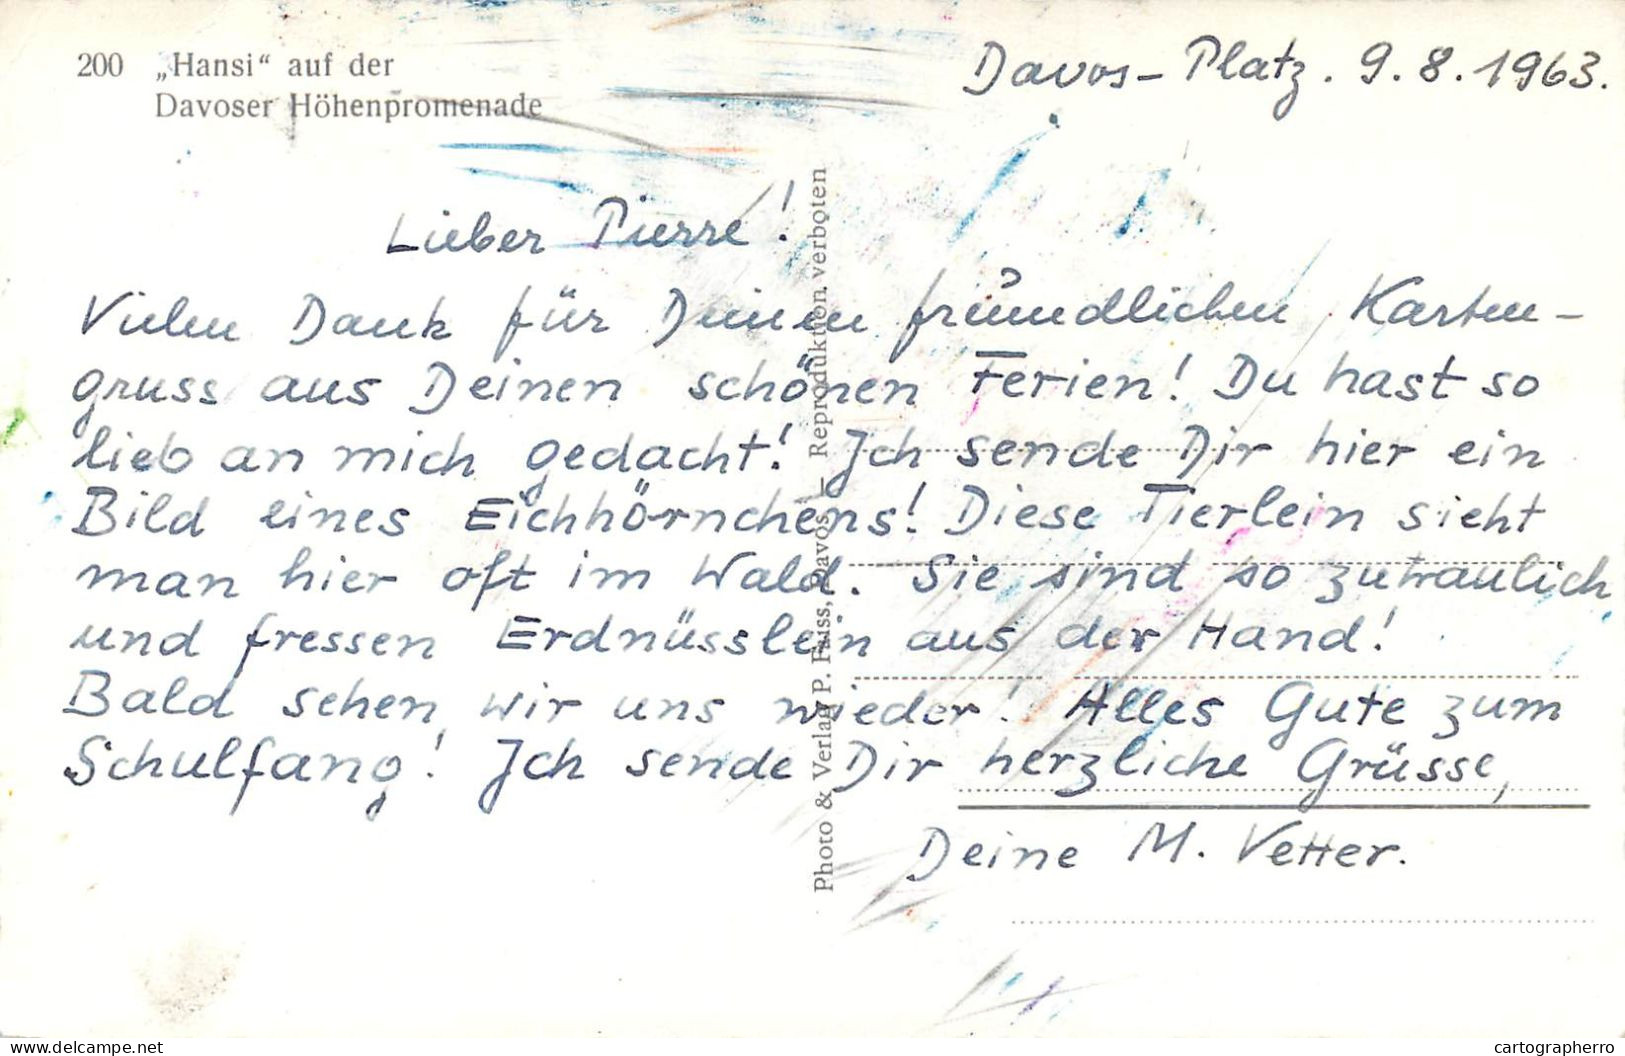 200 „Hansi“ auf der
Davoser Höhenpromenade
Davos-Platz. 9.8.1963.
Lieber Pierre!
Vielen Dank für Deinen freundlichen Karten-
gruss aus Deinen schönen Ferien! Du hast so
lieb an mich gedacht! Ich sende Dir hier ein
Bild eines Eichhörnchens! Diese Tierlein sieht
man hier oft im Wald. Sie sind so zutraulich
und fressen Erdnüsslein aus der Hand!
Bald sehen wir uns wieder! Alles Gute zum
Schulfang! Ich sende Dir herzliche Grüsse,
Deine M. Vetter.
Photo & Verlag P. Fuss, Davos – Reproduktion verboten
www.delcampe.net
cartographerro